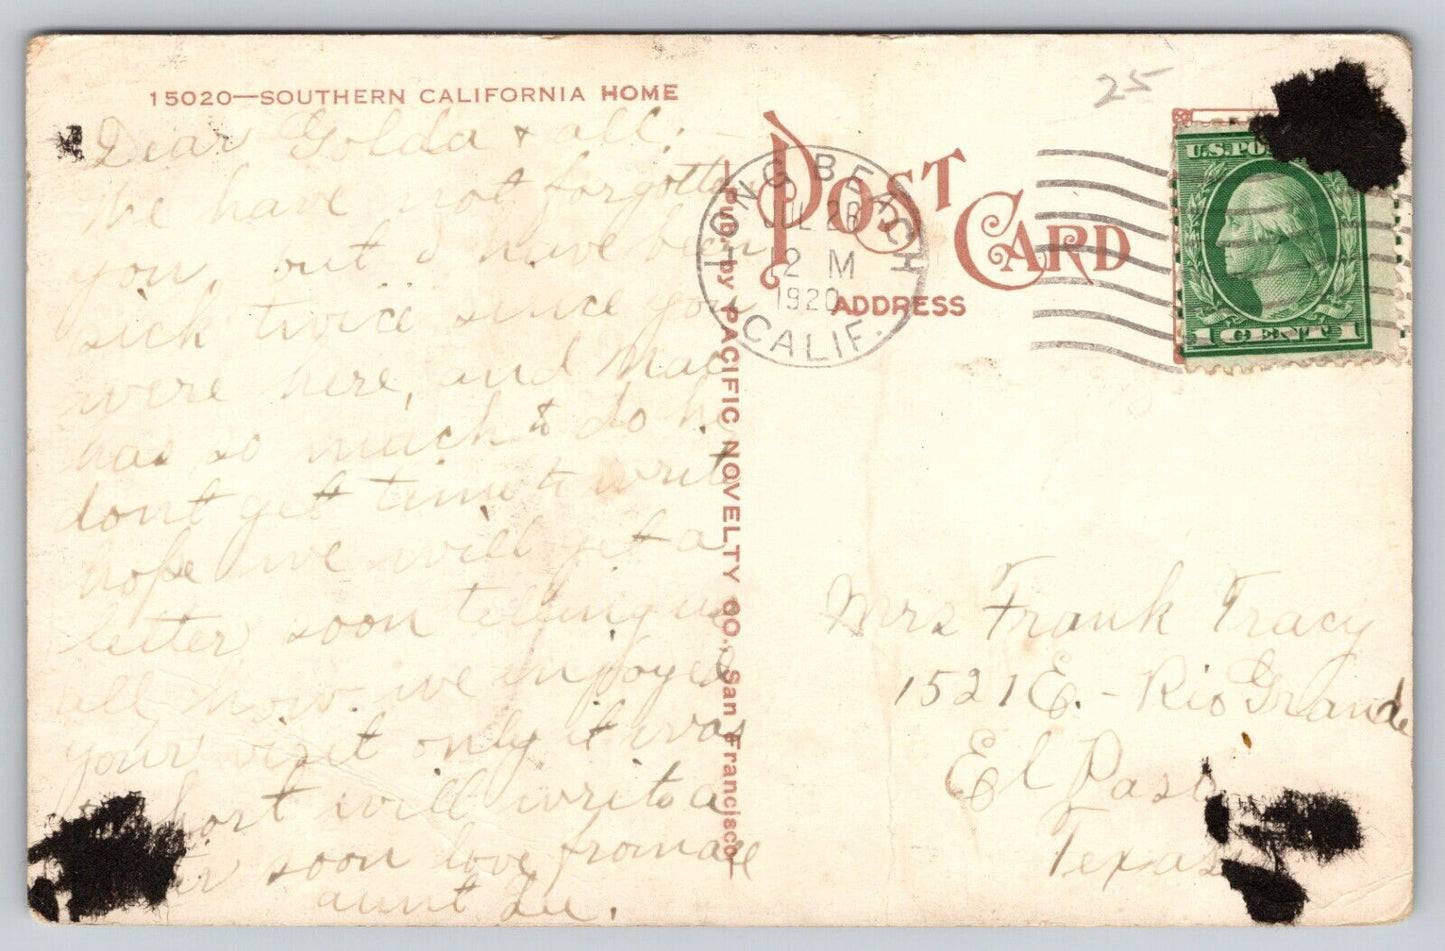 15020—SOUTHERN CALIFORNIA HOME
Dear Golda & all; —
We have not forgotten
you, but I have been
sick twice since you
were here, and Mac
has so much to do he
dont get time to write
hope we will get a
letter soon telling us
all how we enjoyed
your visit only it was
short will write a
soon love from all
aunt Lu.
Pub. by PACIFIC NOVELTY CO., San Francisco
POST CARD
ADDRESS
LONG BEACH
JUL 28
12 M
1920
CALIF.
25
U.S.PO
1 CENT 1
Mrs Frank Tracy
1521 E. - Rio Grande
El Paso
Texas